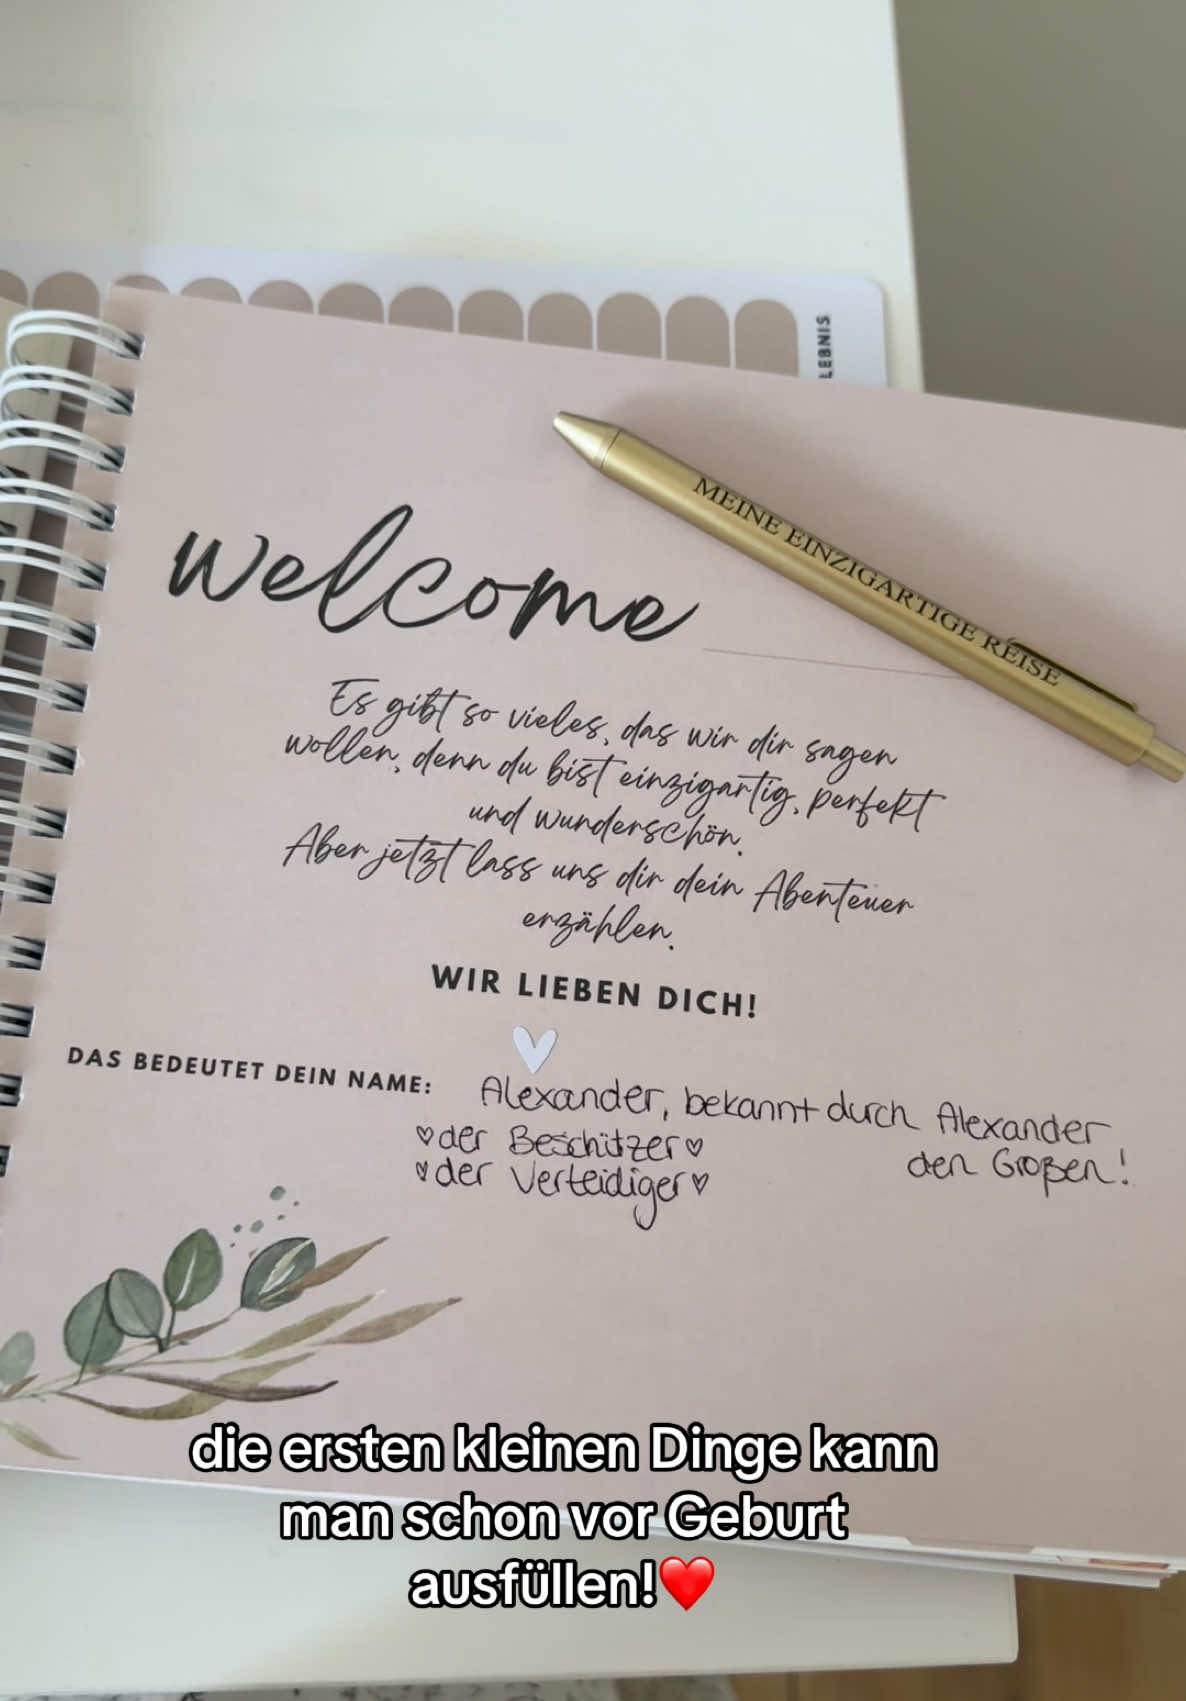 LEBNIS
MEINE EINZIGARTIGE REISE
welcome
Es gibt so vieles, das wir dir sagen
wollen, denn du bist einzigartig, perfekt
und wunderschön.
Aber jetzt lass uns dir dein Abenteuer
erzählen.
WIR LIEBEN DICH!
DAS BEDEUTET DEIN NAME:
Alexander, bekannt durch Alexander
den Großen!
♡der Beschützer♡
♡der Verteidiger♡
die ersten kleinen Dinge kann
man schon vor Geburt
ausfüllen!❤️